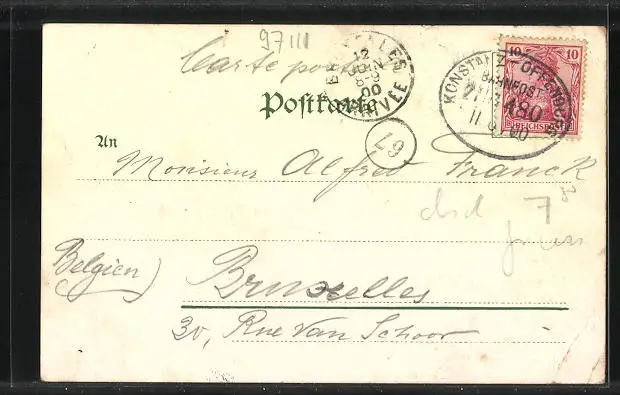 97111
Carte postale
BRUXELLES
12
8-9
00
ARRIVÉE
Postkarte
KONSTANZ - OFFENBURG
BAHNPOST
ZUG 480
11 00
10 10
REICHSPOST
67
An
Monsieur Alfred Franck
7
Belgien)
Bruxelles
30, Rue Van Schoor